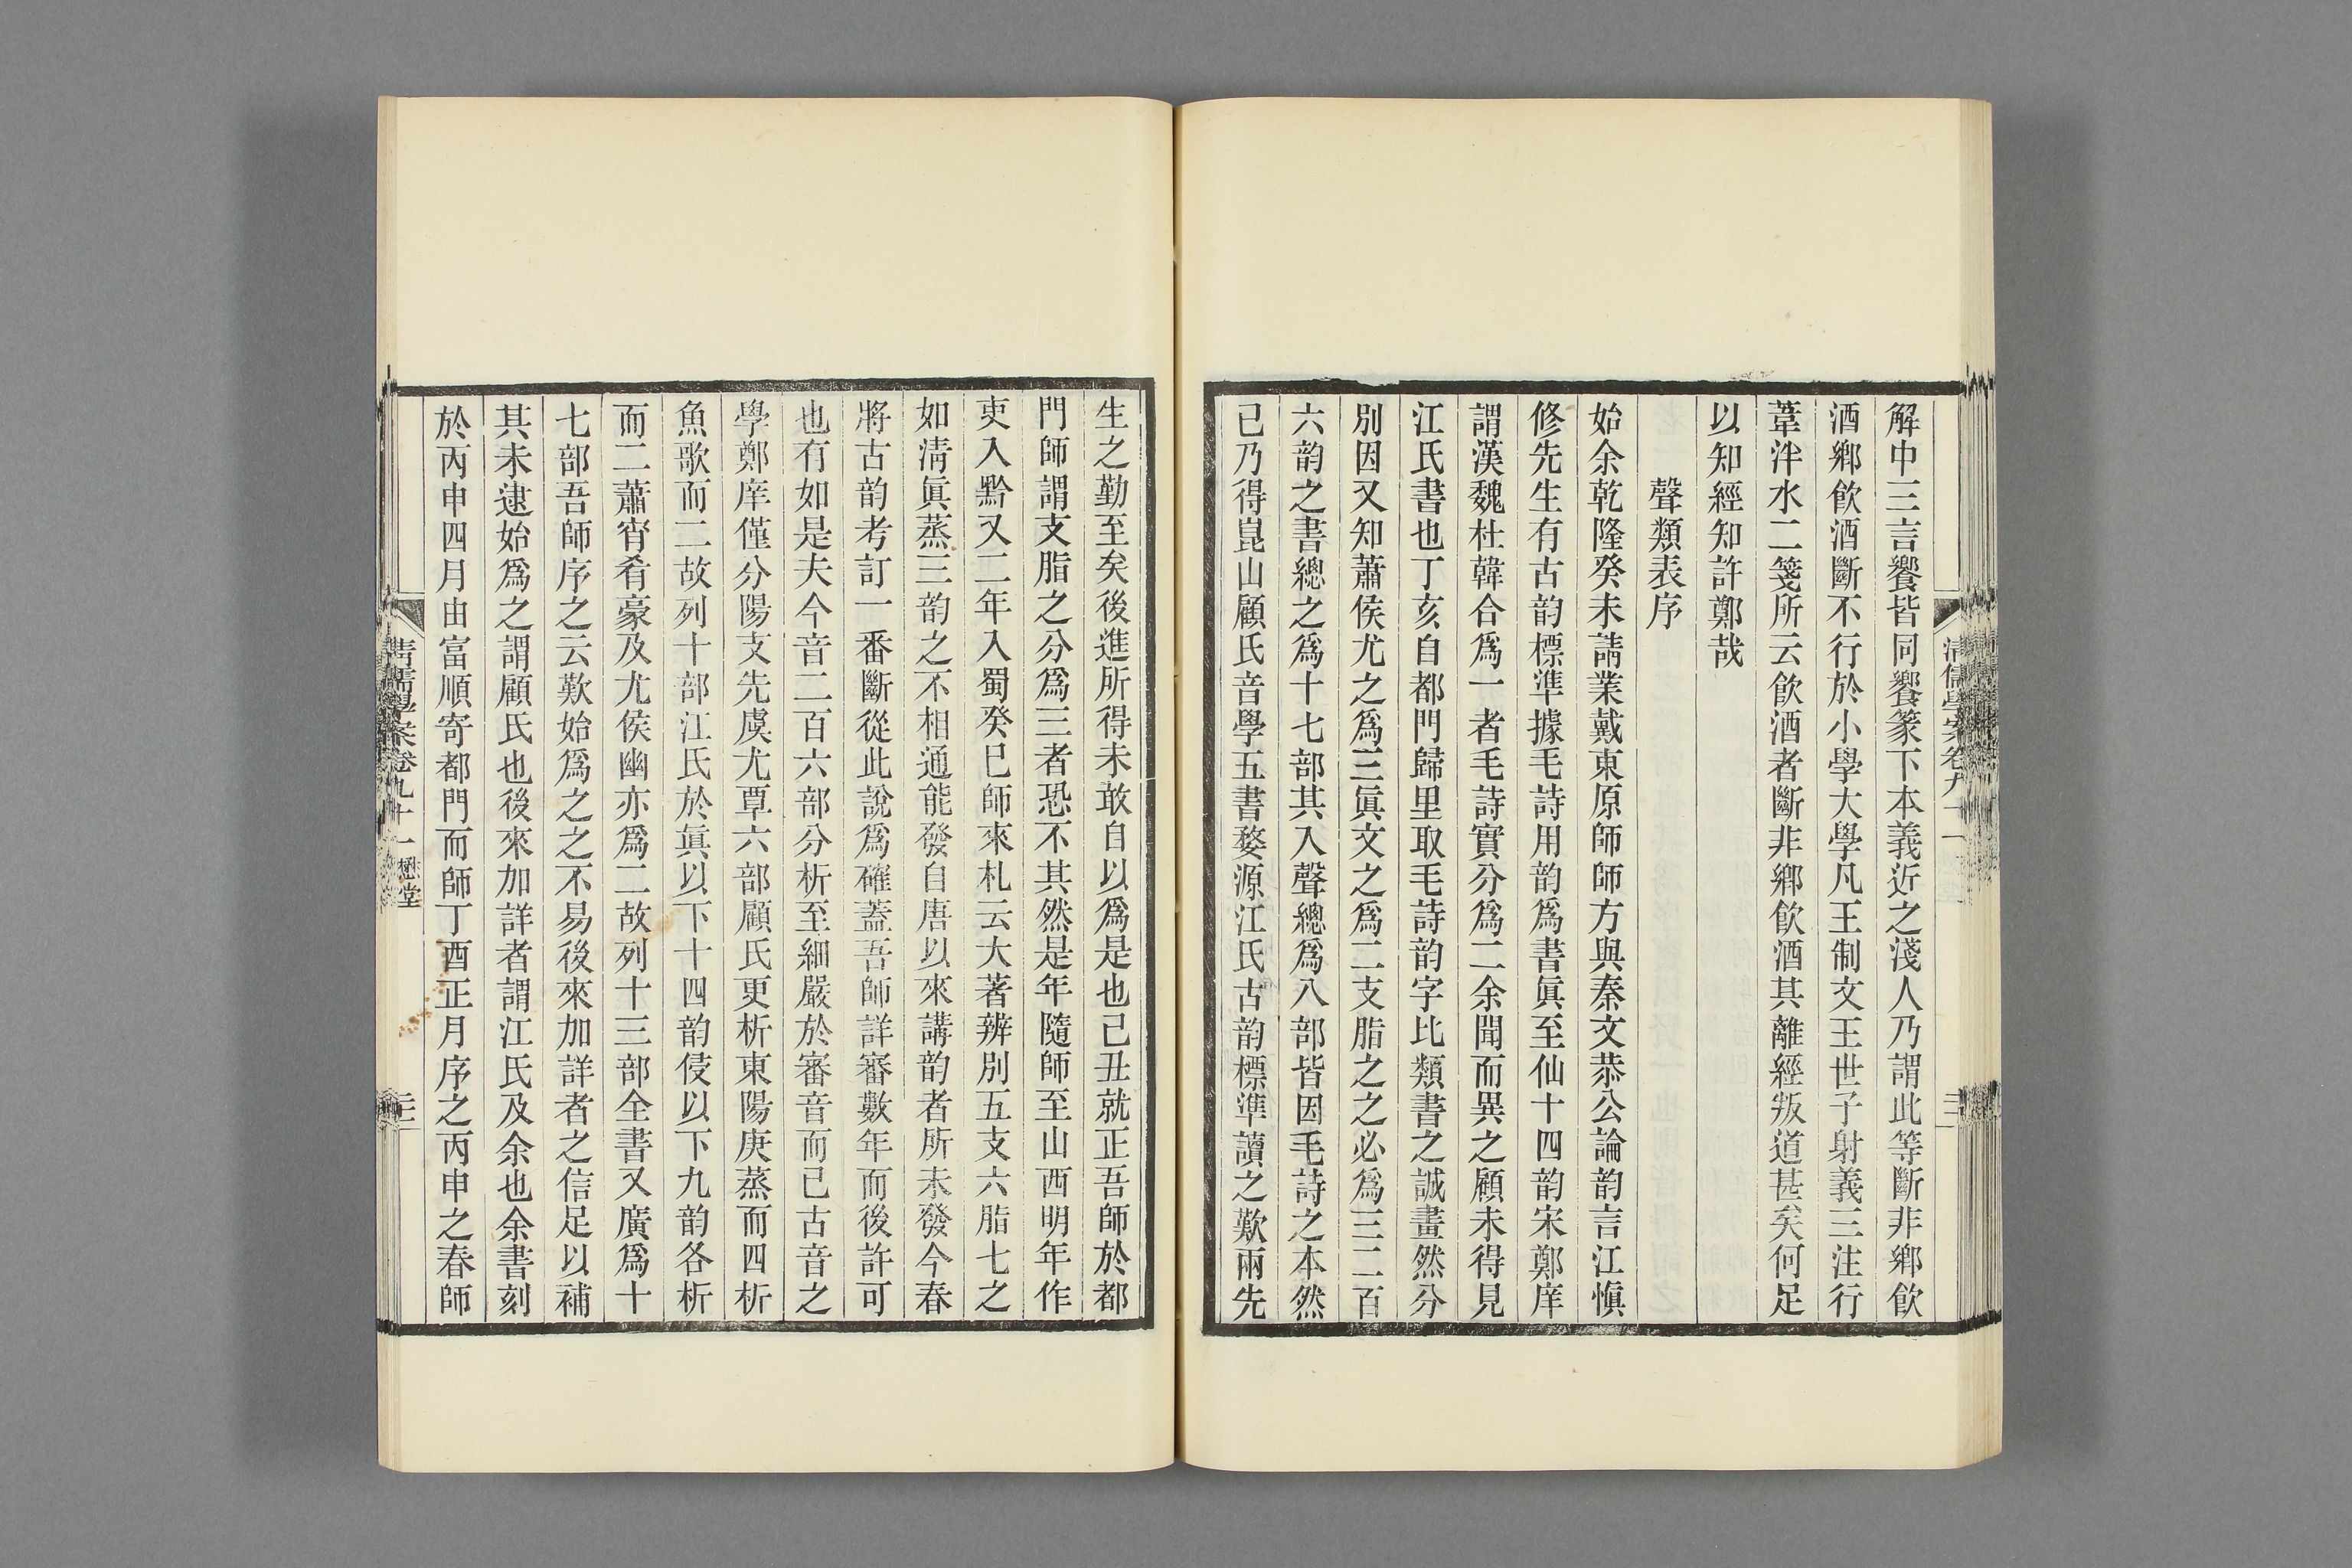 解中三言饗皆同饗篆下本義近之淺人乃謂此等斷非鄉飲
酒鄉飲酒斷不行於小學大學凡王制文王世子射義三注行
葦泮水二箋所云飲酒者斷非鄉飲酒其離經叛道甚矣何足
以知經知許鄭哉
聲類表序
始余乾隆癸未請業戴東原師師方與秦文恭公論韵言江愼
修先生有古韵標準據毛詩用韵爲書眞至仙十四韵宋鄭庠
謂漢魏杜韓合爲一者毛詩實分爲二余聞而異之顧未得見
江氏書也丁亥自都門歸里取毛詩韵字比類書之誠畫然分
別因又知蕭侯尤之爲三眞文之爲二支脂之之必爲三二百
六韵之書總之爲十七部其入聲總爲八部皆因毛詩之本然
已乃得崑山顧氏音學五書婺源江氏古韵標準讀之歎兩先
生之勤至矣後進所得未敢自以爲是也己丑就正吾師於都
門師謂支脂之分爲三者恐不其然是年隨師至山西明年作
吏入黔又二年入蜀癸巳師來札云大著辨別五支六脂七之
如清眞蒸三韵之不相通能發自唐以來講韵者所未發今春
將古韵考訂一番斷從此說爲確蓋吾師詳審數年而後許可
也有如是夫今音二百六部分析至細嚴於審音而已古音之
學鄭庠僅分陽支先虞尤覃六部顧氏更析東陽庚蒸而四析
魚歌而二故列十部江氏於眞以下十四韵侵以下九韵各析
而二蕭宵肴豪及尤侯幽亦爲二故列十三部全書又廣爲十
七部吾師序之云歎始爲之之不易後來加詳者之信足以補
其未逮始爲之謂顧氏也後來加詳者謂江氏及余也余書刻
於丙申四月由富順寄都門而師丁酉正月序之丙申之春師
清儒學案卷九十一 懋堂